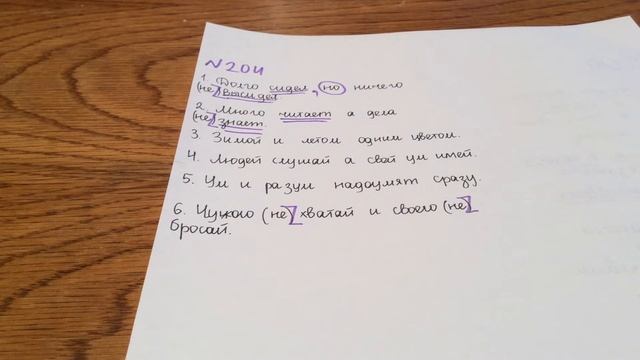 N204
1. Долго сидел, но ничего
(не) высидел.
2. Много читает а дела
(не) знает.
3. Зимой и летом одним цветом.
4. Людей слушай а свой ум имей.
5. Ум и разум надоумят сразу.
6. Чужого (не) хватай и своего (не)
бросай.